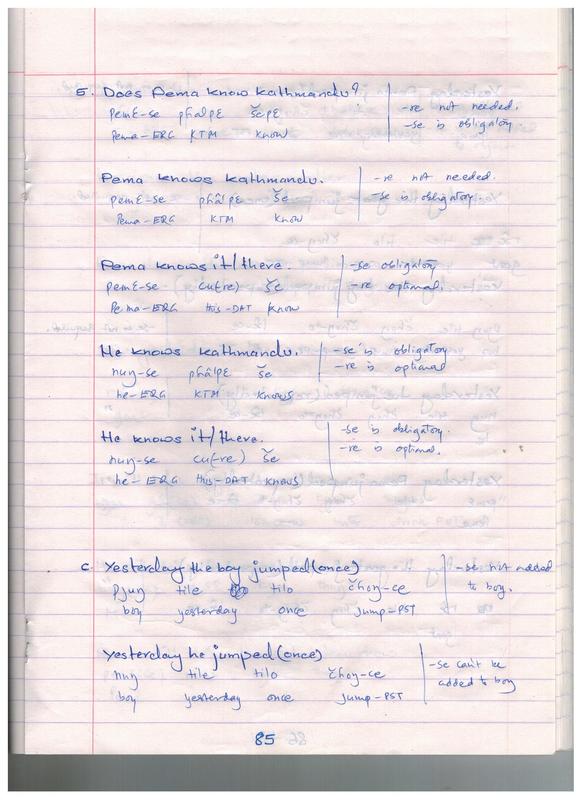 5. Does Pema know Kathmandu? -re not needed.
pemɛ-se phâlpɛ šepɛ -se is obligatory.
Pema-ERG KTM know
Pema knows Kathmandu. -re not needed.
pemɛ-se phâlpɛ še -se is obligatory.
Pema-ERG KTM know
Pema knows it/there. -se obligatory
pemɛ-se cu(-re) še -re optional.
Pema-ERG this-DAT know
He knows Kathmandu. -se is obligatory
nuŋ-se phâlpɛ še -re is optional
he-ERG KTM knows
He knows it/there. -se is obligatory.
nuŋ-se cu(-re) še -re is optional.
he-ERG this-DAT knows
c. Yesterday the boy jumped (once) -se not added
Pjuŋ tile tilo čhoŋ-ce to boy.
boy yesterday once jump-PST
Yesterday he jumped (once) -se can't be
nuŋ tile tilo čhoŋ-ce added to boy
boy yesterday once jump-PST
85